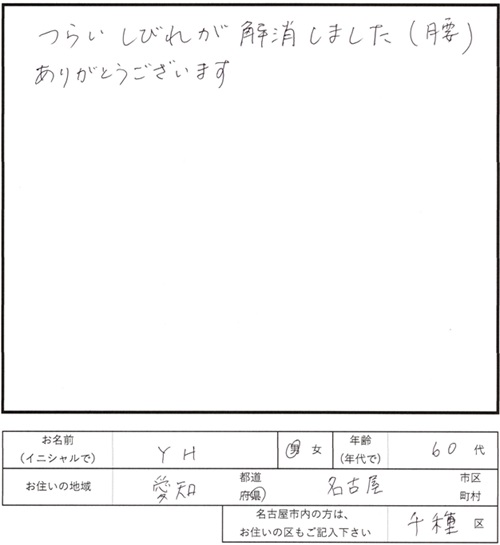 つらいしびれが解消しました(腰)
ありがとうございます
お名前
(イニシャルで)
Y H
男 女
年齢
(年代で)
60 代
お住いの地域
愛知
都道
府県
名古屋
市区
町村
名古屋市内の方は、
お住いの区もご記入下さい
千種 区